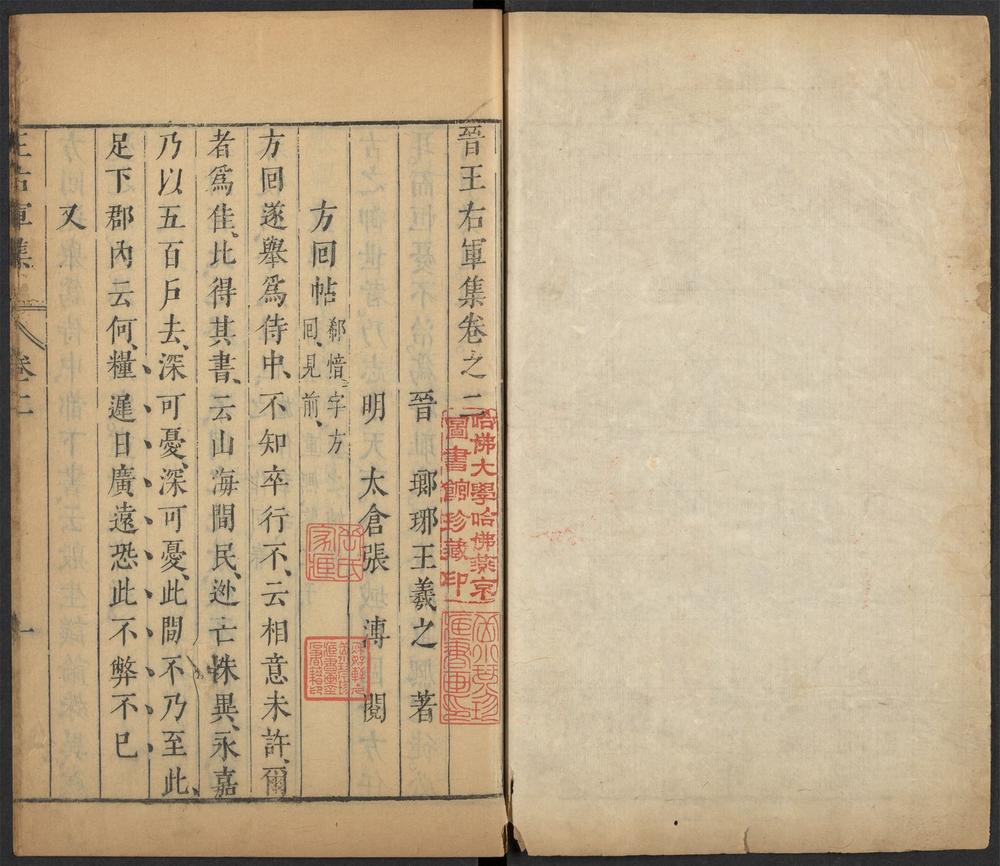 晉王右軍集卷之二
晉 瑯琊王羲之 著
明 太倉張溥 閱
方回帖
郗愔字方
回、見前、
方回遂舉爲侍中、不知卒行不、云相意未許、爾
者爲佳、比得其書、云山海間民、逃亡殊異、永嘉
乃以五百戶去、深可憂、深可憂、此間不乃至此、
足下郡內云何、糧遲日廣遠恐此不弊不已
又
王右軍集
卷二
一
哈佛大學哈佛燕京
圖書館珍藏印